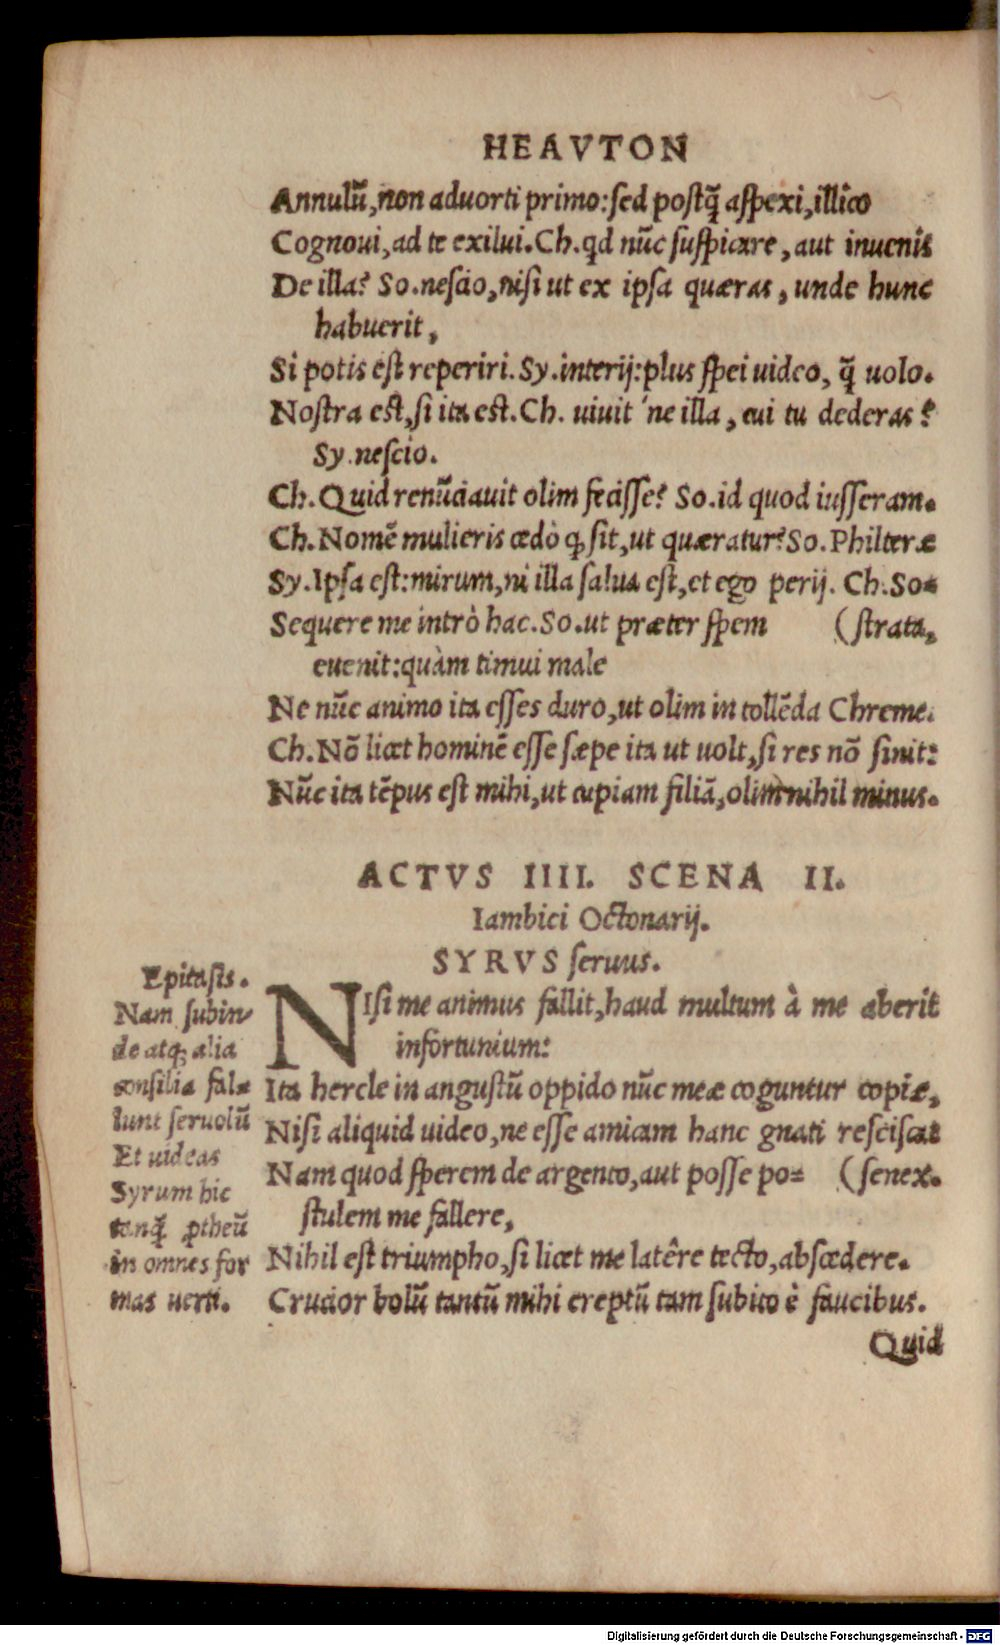 HEAVTON
Annulū, non aduorti primo: ſed poſtq̄ aſpexi, illico
Cognoui, ad te exilui. Ch. qd nūc ſuſpicare, aut inuenis
De illa? So. neſcio, niſi ut ex ipſa quæras, unde hunc
habuerit,
Si potis eſt reperiri. Sy. interij: plus ſpei uideo, q̄ uolo.
Noſtra eſt, ſi ita eſt. Ch. uiuit 'ne illa, cui tu dederas?
Sy. neſcio.
Ch. Quid renūciauit olim feciſſe? So. id quod iuſſeram.
Ch. Nomē mulieris cedò ꝙ ſit, ut quæratur? So. Philteræ
Sy. Ipſa eſt: mirum, ni illa ſalua eſt, et ego perij. Ch. So=
Sequere me intrò hac. So. ut præter ſpem (ſtrata,
euenit: quàm timui male
Ne nūc animo ita eſſes duro, ut olim in tollēda Chreme.
Ch. Nō licet hominē eſſe ſæpe ita ut uolt, ſi res nō ſinit:
Nūc ita tēpus eſt mihi, ut cupiam filiā, olim nihil minus.
ACTVS IIII. SCENA II.
Iambici Octonarij.
SYRVS ſeruus.
NIſi me animus fallit, haud multum à me aberit
infortunium:
Ita hercle in anguſtū oppido nūc meæ coguntur copiæ,
Niſi aliquid uideo, ne eſſe amicam hanc gnati reſciſcat
Nam quod ſperem de argento, aut poſſe po= (ſenex.
ſtulem me fallere,
Nihil eſt triumpho, ſi licet me latêre tecto, abſcedere.
Crucior bolū tantū mihi ereptū tam ſubito è faucibus.
Quid
Epitaſis.
Nam ſubin-
de atqꝫ alia
conſilia falæ
lunt ſeruolū
Et uideas
Syrum hic
tanq̄ ꝓtheū
in omnes for
mas uerti.
Digitalisierung gefördert durch die Deutsche Forschungsgemeinschaft - DFG